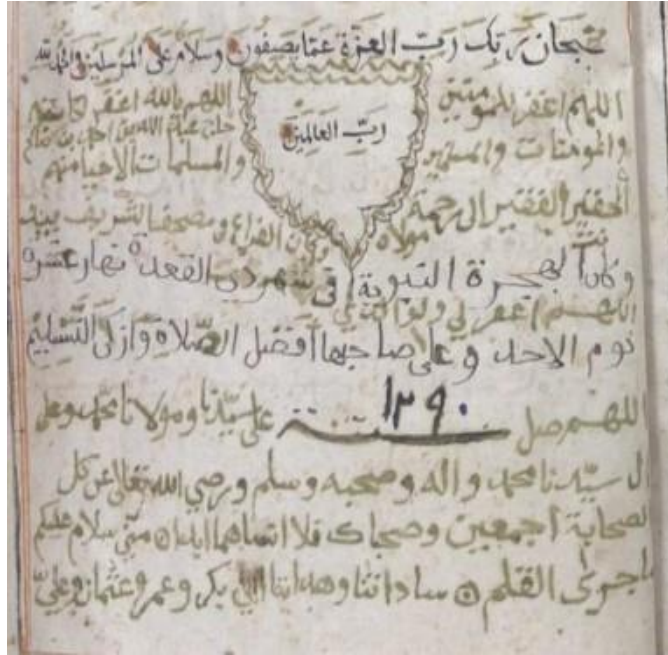 سبحان ربك رب العزة عما يصفون وسلام على المرسلين والحمد لله
رب العالمين
اللهم اغفر للمومنين
والمومنات والمسلمين
اللهم بالله اغفر لكاتبه
والمسلمات الاحيا منهم
الحقير الفقير الى رحمة مولاه
وكان الفراغ ومصحفا لشريف بيد
وكان الهجرة النبوية في شهر ذي القعدة نهار عشرة
اللهم اغفر لي ولوالدي
نوم الاحد وعلى صاحبها افضل الصلاة وازكى التسليم
١٢٩٠
اللهم صل على سيدنا ومولانا محمد وعلى
ال سيدنا محمد واله وصحبه وسلم ورضي الله تعالى عن كل
لصحابة اجمعين وصحابك فلا انساهما ابدا مني سلام عليكم
ما جرى القلم ساداتنا وهداتنا ابي بكر وعمر وعثمان وعلي